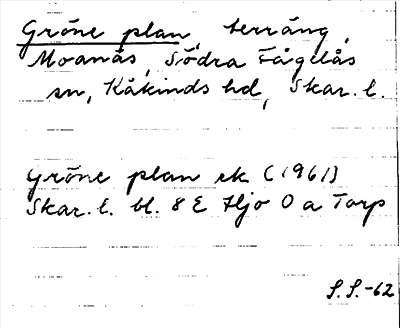 Gröne plan, terräng,
Moanäs, Södra Fågelås
sn, Kåkinds hd, Skar. l.
Gröne plan ek (1961)
Skar. l. bl. 8 E Hjo 0 a Torp
S.S.-62